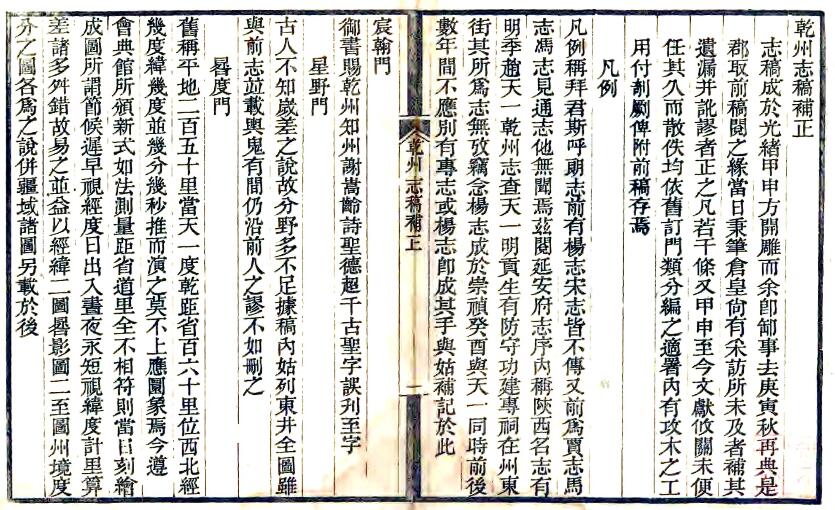 乾州志稿補正
志稿成於光緒甲申方開雕而余即卸事去庚寅秋再典是
郡取前稿閱之緣當日秉筆倉皇尙有采訪所未及者補其
遺漏并訛謬者正之凡若干條又甲申至今文獻攸關未便
任其久而散佚均依舊訂門類分編之適署內有攻木之工
用付剞劂俾附前稿存焉
凡例
凡例稱拜君斯呼朙志前有楊志宋志皆不傳又前爲賈志馬
志馮志見通志他無聞焉茲閱延安府志序內稱陝西名志有
明季趙天一乾州志查天一明貢生有防守功建專祠在州東
街其所爲志無攷竊念楊志成於崇禎癸酉與天一同時前後
數年間不應別有專志或楊志卽成其手與姑補記於此
乾州志稿補正
一
宸翰門
御書賜乾州知州謝嵩齡詩聖德超千古聖字誤刋至字
星野門
古人不知歲差之說故分野多不足據稿內姑列東井全圖雖
與前志並載輿鬼有間仍沿前人之謬不如刪之
晷度門
舊稱平地二百五十里當天一度乾距省百六十里位西北經
幾度緯幾度並幾分幾秒推而演之莫不上應圜象焉今遵
會典館所頒新式如法測量距省道里全不相符則當日刻繪
成圖所謂節候遲早視經度日出入晝夜永短視緯度計里算
差諸多舛錯故易之並益以經緯二圖晷影圖二至圖州境度
分之圖各爲之說併疆域諸圖另載於後